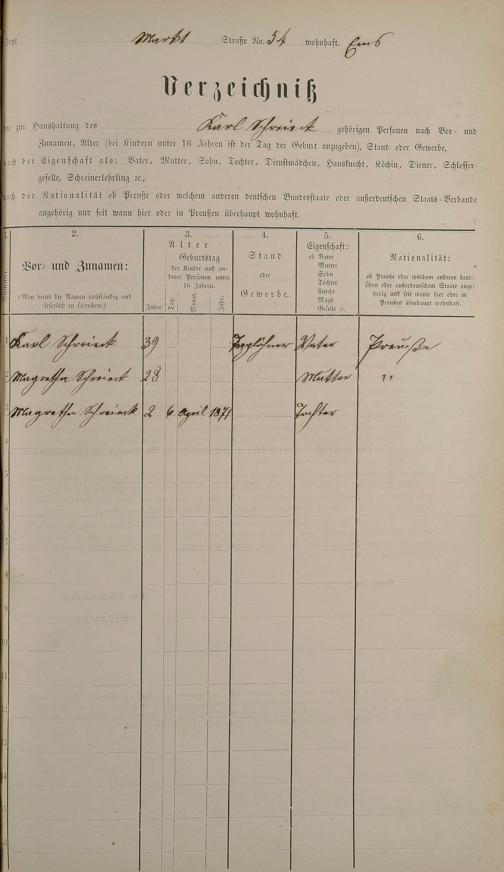 Jetzt Markt Straße No. 34 wohnhaft. Ems
Verzeichniß
der zur Haushaltung des Karl Schreieck gehörigen Personen nach Vor- und
Zunamen, Alter (bei Kindern unter 16 Jahren ist der Tag der Geburt anzugeben), Stand oder Gewerbe,
nach der Eigenschaft als: Vater, Mutter, Sohn, Tochter, Dienstmädchen, Hausknecht, Köchin, Diener, Schlosser-
geselle, Schreinerlehrling ec.,
nach der Nationalität ob Preuße oder welchem anderen deutschen Bundesstaate oder außerdeutschen Staats-Verbande
angehörig und seit wann hier oder in Preußen überhaupt wohnhaft.
1. 2. 3. 4. 5. 6.
Nummer
Vor- und Zunamen:
(Man bittet die Namen vollständig und
leserlich zu schreiben.)
Alter
Geburtstag
der Kinder und an-
derer Personen unter
16 Jahren.
Jahre. Tag. Monat. Jahr.
Stand
oder
Gewerbe.
Eigenschaft:
ob Vater
Mutter
Sohn
Tochter
Knecht
Magd
Geselle ec.
Nationalität:
ob Preuße oder welchem anderen deut-
schen oder außerdeutschen Staate ange-
hörig und seit wann hier oder in
Preußen überhaupt wohnhaft.
1 Karl Schreieck 39 Taglöhner Vater Preuße
2 Magretha Schreieck 28 Mutter "
3 Magretha Schreieck 2 6 April 1871 Tochter
4
5
6
7
8
9
10
11
12
13
14
15
16